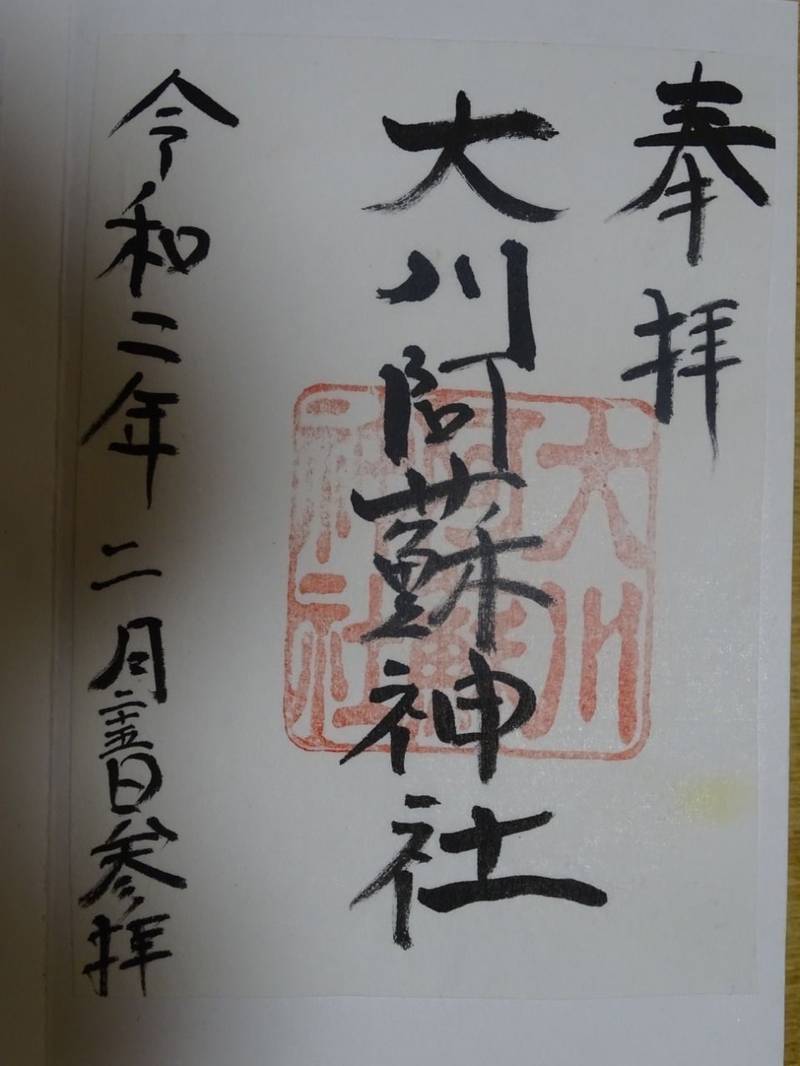 奉拝
大川阿蘇神社
大川阿蘇神社
令和二年二月二十五日参拝